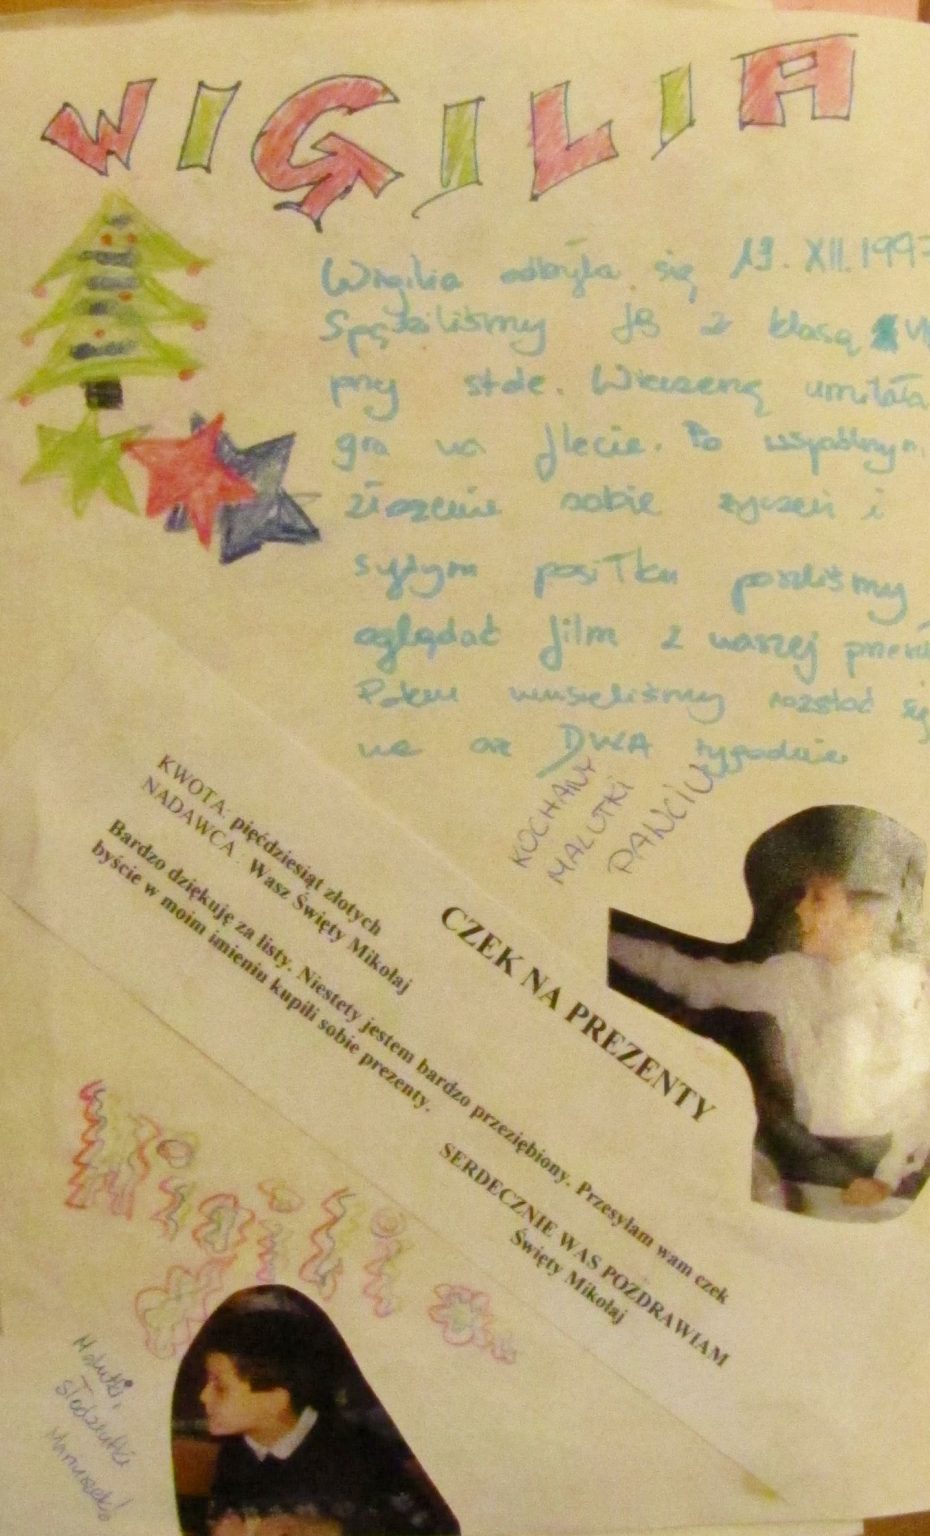 WIGILIA
Wigilia odbyła się 19. XII. 1997
Spędziliśmy ją z klasą
przy stole. Wieczerzę umilała
gra na flecie. Po wspólnym
złożeniu sobie życzeń i
sytym posiłku poszliśmy
oglądać film z naszej
Potem musieliśmy rozstać się
na aż DWA tygodnie
KOCHANY
MALUTKI
PANCIU
CZEK NA PREZENTY
KWOTA: pięćdziesiąt złotych
NADAWCA: Wasz Święty Mikołaj
Bardzo dziękuję za listy. Niestety jestem bardzo przeziębiony. Przesyłam wam czek
byście w moim imieniu kupili sobie prezenty.
SERDECZNIE WAS POZDRAWIAM
Święty Mikołaj
Wigilia
Malutki,
słodziutki